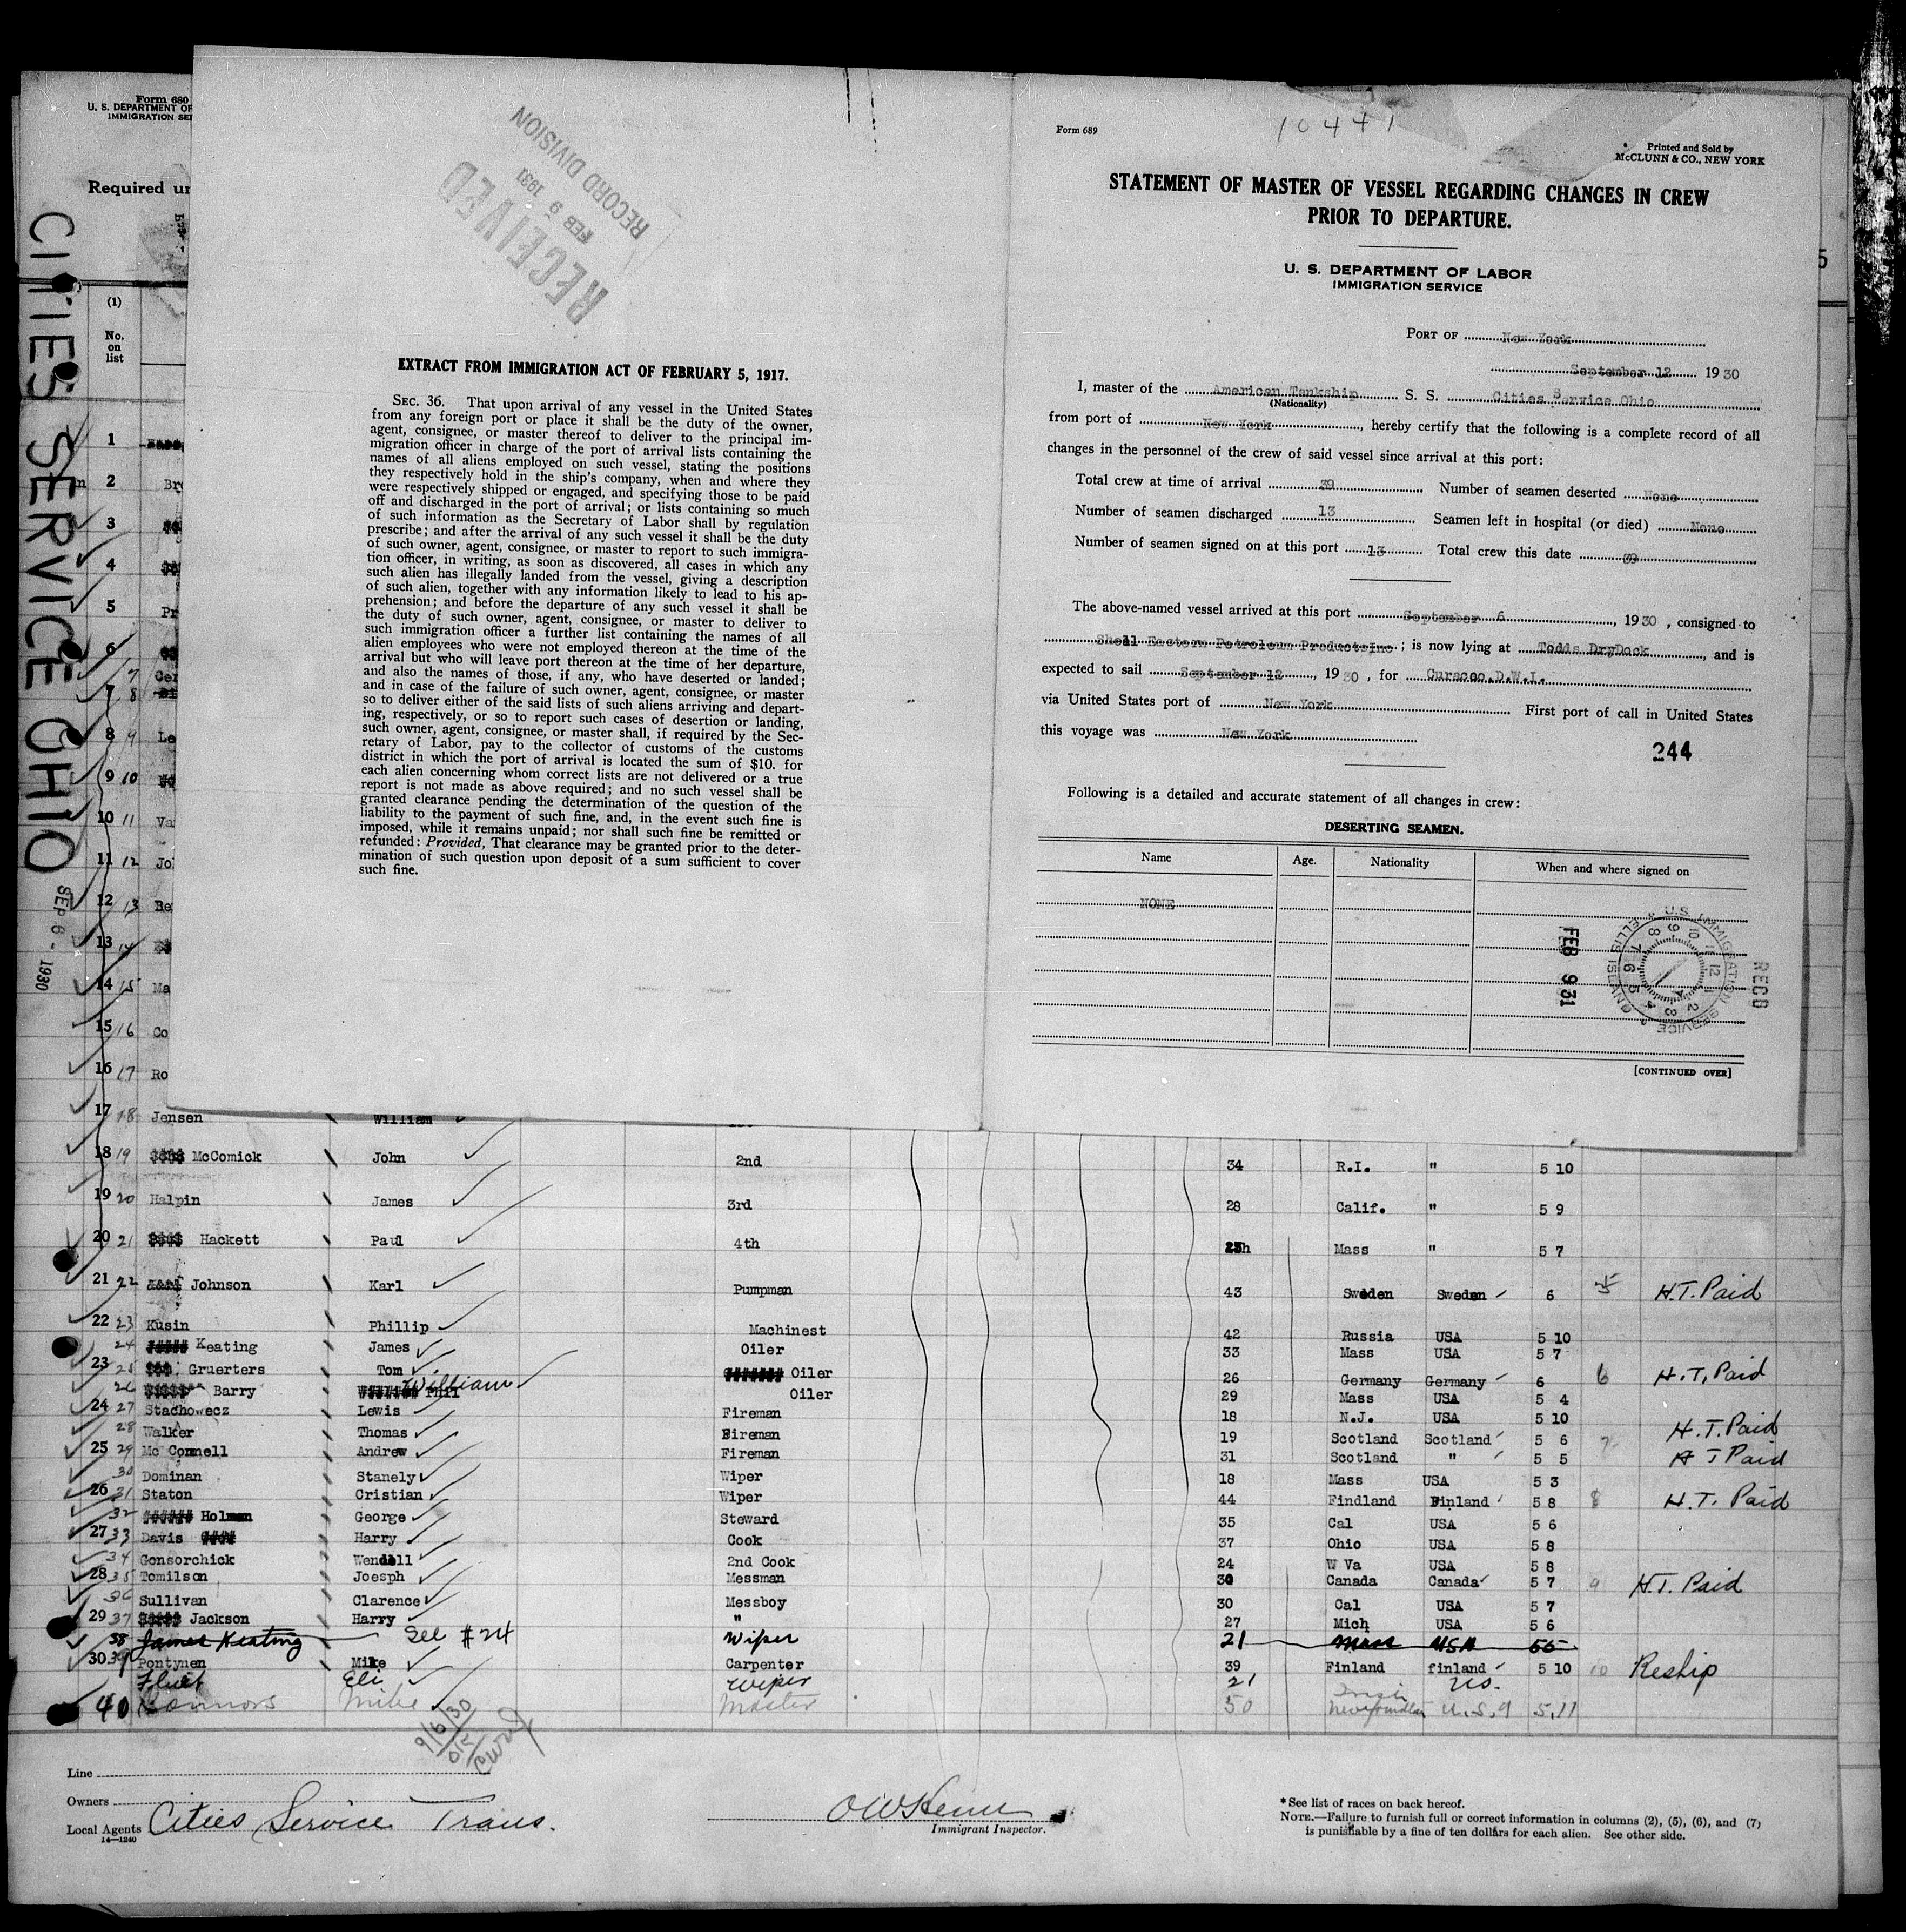 Form 680
U. S. DEPARTMENT OF
IMMIGRATION SE
Required un
CITIES SERVICE OHIO
SEP 6 - 1930
(1)
No.
on
list
1
2 Br
3
4
5 Pr
6
7 Cer
7 8
8 9 Le
9 10
10 11 Va
11 12 Jo
12 13 Be
13 14
14 15 Ma
15 16 Co
16 17 Ro
RECEIVED
FEB 9 1931
RECORD DIVISION
EXTRACT FROM IMMIGRATION ACT OF FEBRUARY 5, 1917.
SEC. 36. That upon arrival of any vessel in the United States
from any foreign port or place it shall be the duty of the owner,
agent, consignee, or master thereof to deliver to the principal im-
migration officer in charge of the port of arrival lists containing the
names of all aliens employed on such vessel, stating the positions
they respectively hold in the ship's company, when and where they
were respectively shipped or engaged, and specifying those to be paid
off and discharged in the port of arrival; or lists containing so much
of such information as the Secretary of Labor shall by regulation
prescribe; and after the arrival of any such vessel it shall be the duty
of such owner, agent, consignee, or master to report to such immigra-
tion officer, in writing, as soon as discovered, all cases in which any
such alien has illegally landed from the vessel, giving a description
of such alien, together with any information likely to lead to his ap-
prehension; and before the departure of any such vessel it shall be
the duty of such owner, agent, consignee, or master to deliver to
such immigration officer a further list containing the names of all
alien employees who were not employed thereon at the time of the
arrival but who will leave port thereon at the time of her departure,
and also the names of those, if any, who have deserted or landed;
and in case of the failure of such owner, agent, consignee, or master
so to deliver either of the said lists of such aliens arriving and depart-
ing, respectively, or so to report such cases of desertion or landing,
such owner, agent, consignee, or master shall, if required by the Sec-
retary of Labor, pay to the collector of customs of the customs
district in which the port of arrival is located the sum of $10. for
each alien concerning whom correct lists are not delivered or a true
report is not made as above required; and no such vessel shall be
granted clearance pending the determination of the question of the
liability to the payment of such fine, and, in the event such fine is
imposed, while it remains unpaid; nor shall such fine be remitted or
refunded: Provided, That clearance may be granted prior to the deter-
mination of such question upon deposit of a sum sufficient to cover
such fine.
Form 689
10471
Printed and Sold by
McCLUNN & CO., NEW YORK
STATEMENT OF MASTER OF VESSEL REGARDING CHANGES IN CREW
PRIOR TO DEPARTURE.
U. S. DEPARTMENT OF LABOR
IMMIGRATION SERVICE
PORT OF New York
September 12 1930
I, master of the American Tankship S. S. Cities Service Ohio
(Nationality)
from port of New York, hereby certify that the following is a complete record of all
changes in the personnel of the crew of said vessel since arrival at this port:
Total crew at time of arrival 39 Number of seamen deserted None
Number of seamen discharged 13 Seamen left in hospital (or died) None
Number of seamen signed on at this port 13 Total crew this date 39
The above-named vessel arrived at this port September 6, 1930, consigned to
Shell Eastern Petroleum ProductsInc; is now lying at Todds DryDock, and is
expected to sail September 12, 1930, for Curacoo.D.W.I.
via United States port of New York First port of call in United States
this voyage was New York
244
Following is a detailed and accurate statement of all changes in crew:
DESERTING SEAMEN.
Name Age. Nationality When and where signed on
NONE
RECD
U.S. IMMIGRATION SERVICE ELLIS ISLAND
FEB 9 31
[CONTINUED OVER]
17 18 Jensen William
18 19 McComick John 2nd 34 R.I. " 5 10
19 20 Halpin James 3rd 28 Calif. " 5 9
20 21 Hackett Paul 4th Mass " 5 7
21 22 Johnson Karl Pumpman 43 Sweden Sweden 6 5 H.T. Paid
22 23 Kusin Phillip Machinest 42 Russia USA 5 10
24 Keating James Oiler 33 Mass USA 5 7
23 25 Gruerters Tom Oiler 26 Germany Germany 6 6 H.T. Paid
26 Barry William Phil Oiler 29 Mass USA 5 4
24 27 Stachowecz Lewis Fireman 18 N.J. USA 5 10
28 Walker Thomas Fireman 19 Scotland Scotland 5 6 7 H.T. Paid
25 29 Mc Connell Andrew Fireman 31 Scotland " 5 5 H T Paid
30 Dominan Stanely Wiper 18 Mass USA 5 3
26 31 Staton Cristian Wiper 44 Findland Finland 5 8 8 H.T. Paid
32 Holman George Steward 35 Cal USA 5 6
27 33 Davis Harry Cook 37 Ohio USA 5 8
34 Gonsorchick Wendell 2nd Cook 24 W Va USA 5 8
28 35 Tomilson Joesph Messman 30 Canada Canada 5 7 9 H.T. Paid
36 Sullivan Clarence Messboy 30 Cal USA 5 7
29 37 Jackson Harry " 27 Mich USA 5 6
38 James Keating See #24 Wiper 21 Mass USA 55
30 39 Pontynen Mike Carpenter 39 Finland finland 5 10 10 Reship
Fluet Eli Wiper 21 US.
40 Connors Mike Master 50 Newfoundland U.S. 5.11
9/6/30
Line
Owners
Local Agents Cities Service Trans.
14—1240
Immigrant Inspector.
*See list of races on back hereof.
NOTE.—Failure to furnish full or correct information in columns (2), (5), (6), and (7)
is punishable by a fine of ten dollars for each alien. See other side.